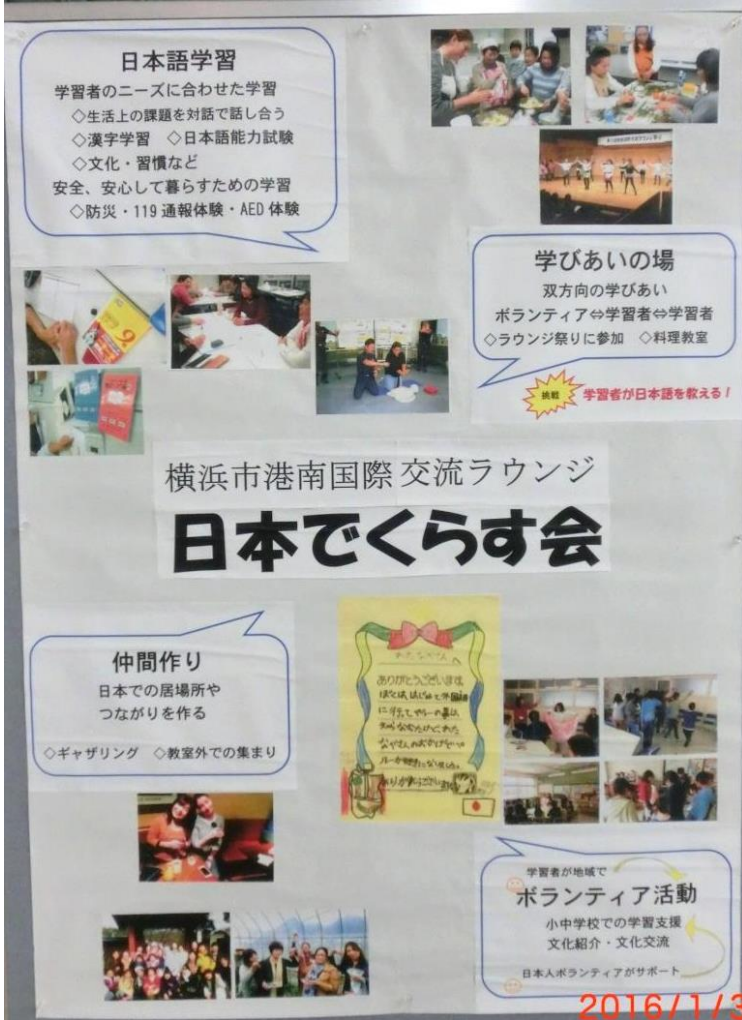 日本語学習
学習者のニーズに合わせた学習
◇生活上の課題を対話で話し合う
◇漢字学習 ◇日本語能力試験
◇文化・習慣など
安全、安心して暮らすための学習
◇防災・119 通報体験・AED 体験
学びあいの場
双方向の学びあい
ボランティア⇔学習者⇔学習者
◇ラウンジ祭りに参加 ◇料理教室
挑戦 学習者が日本語を教える！
横浜市港南国際交流ラウンジ
日本でくらす会
仲間作り
日本での居場所や
つながりを作る
◇ギャザリング ◇教室外での集まり
ありがとうございます
学習者が地域で
ボランティア活動
小中学校での学習支援
文化紹介・文化交流
日本人ボランティアがサポート
2016/1/3